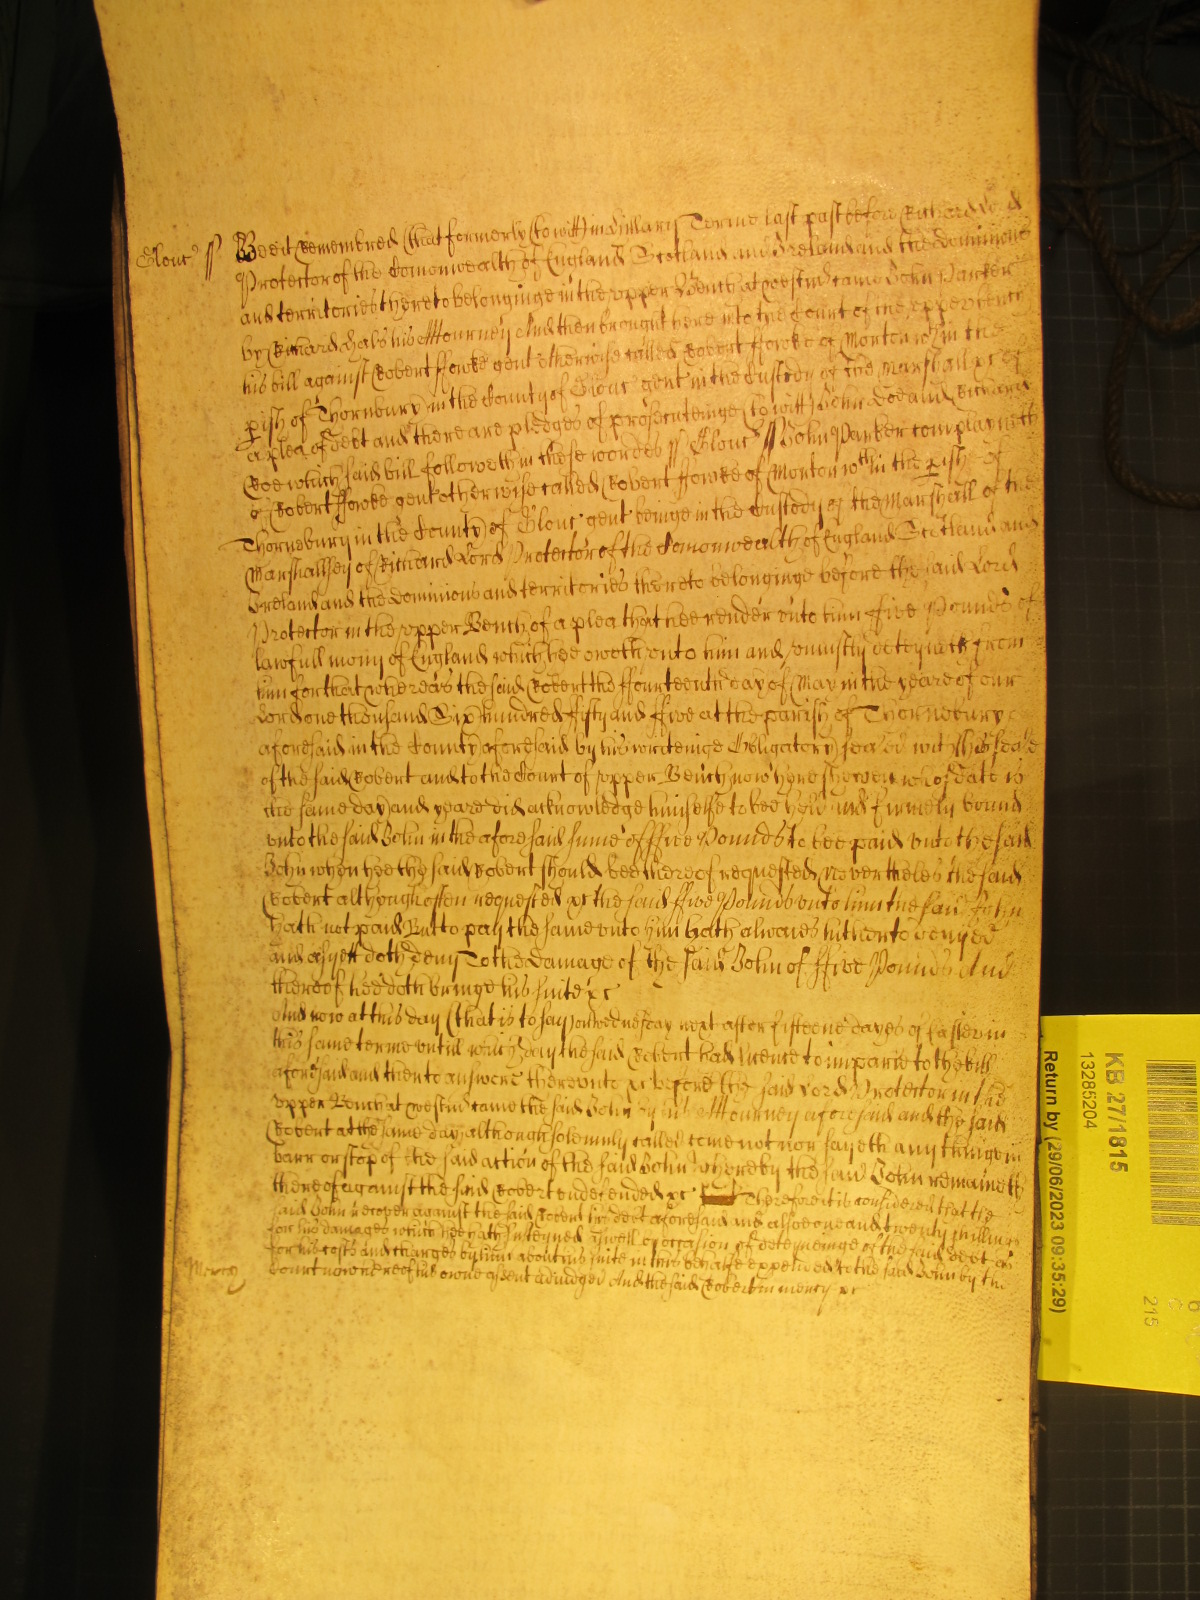 Glouc ss Bee it Remembred that formerly (to witt) in Hillary Terme last past before Richard Lord
Protector of the Comonwealth of England Scotland and Ireland and the dominions
and territories thereto belonginge in the upper Bench at Westm came John Parker
by Richard Hals his Attourney And then brought here into the Court of the upper bench
his bill against Robert ffowke gent otherwise called Robert ffowke of Morton wthin the
pish of Thornbury in the County of Glouc gent in the Custody of the Marshall &c of
a plea of debt and there are pledges of prosecuteinge (to witt) John Doe and Richard
Roe which said bill followeth in these wordes ss Glouc ss John Parker complayneth
of Robert ffowke gent otherwise called Robert ffowke of Morton wthin the pish of
Thornebury in the County of Glouc gent beinge in the Custody of the Marshall of the
Marshallsey of Richard Lord Protector of the Comonwealth of England Scotland and
Ireland and the dominions and territories thereto belonginge before the said Lord
Protector in the upper Bench of a plea that hee render unto him ffive Pounds of
lawfull mony of England which hee oweth unto him and uniustly deteyneth from
him for that whereas the said Robert the ffourteenth day of May in the yeare of our
Lord one thousand Six hundred fifty and ffive at the parish of Thornebury
aforesaid in the County aforesaid by his writeinge Obligatory sealed with the seale
of the said Robert and to the Court of upper Bench now here shewen whose date is
the same day and yeare did acknowledge himselfe to bee held and firmely bound
unto the said John in the aforesaid sume of ffive Pounds to bee paid unto the said
John when hee the said Robert should bee thereof requested Neverthelesse the said
Robert although often requested &c the said ffive Pounds unto him the said John
hath not paid But to pay the same unto him hath alwaies hitherto denyed
and as yett doth deny To the Damage of the said John of ffive Pounds And
thereof hee doth bringe his suite &c
And now at this day (that is to say) on wednesday next after fifteene dayes of Easter in
this same terme untill which day the said Robert had licence to imparle to the bill
aforesaid and then to answere thereunto &c before the said Lord Protector in the
upper Bench at Westm came the said John by his Attourney aforesaid and the said
Robert at the same day although solemnly called came not nor sayeth any thinge in
barr or stop of the said action of the said John whereby the said John remaineth
thereof against the said Robert undefended &c Therefore it is considered that the
said John recover against the said Robert his debt aforesaid and alsoe one and twenty shillings
for his damages which hee hath susteyned aswell by occasion of deteyneinge of the said debt as
for his costs and charges by him about his suite in this behalfe expended to the said John by the
Mercy Court now here of his owne assent adiudged And the said Robert in mercy &c
KB 27/1815
13285204
Return by (29/06/2023 09:35:29)
215